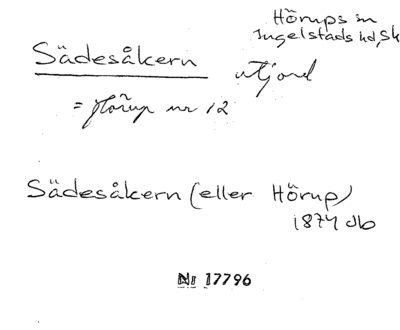 Hörups sn
Ingelstads hd, Sk
Sädesåkern utjord
= Hörup nr 12
Sädesåkern (eller Hörup)
1874 db
Nr 17796